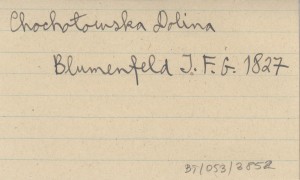 Chochołowska Dolina
Blumenfeld J. F. G. 1827
37/053/2852